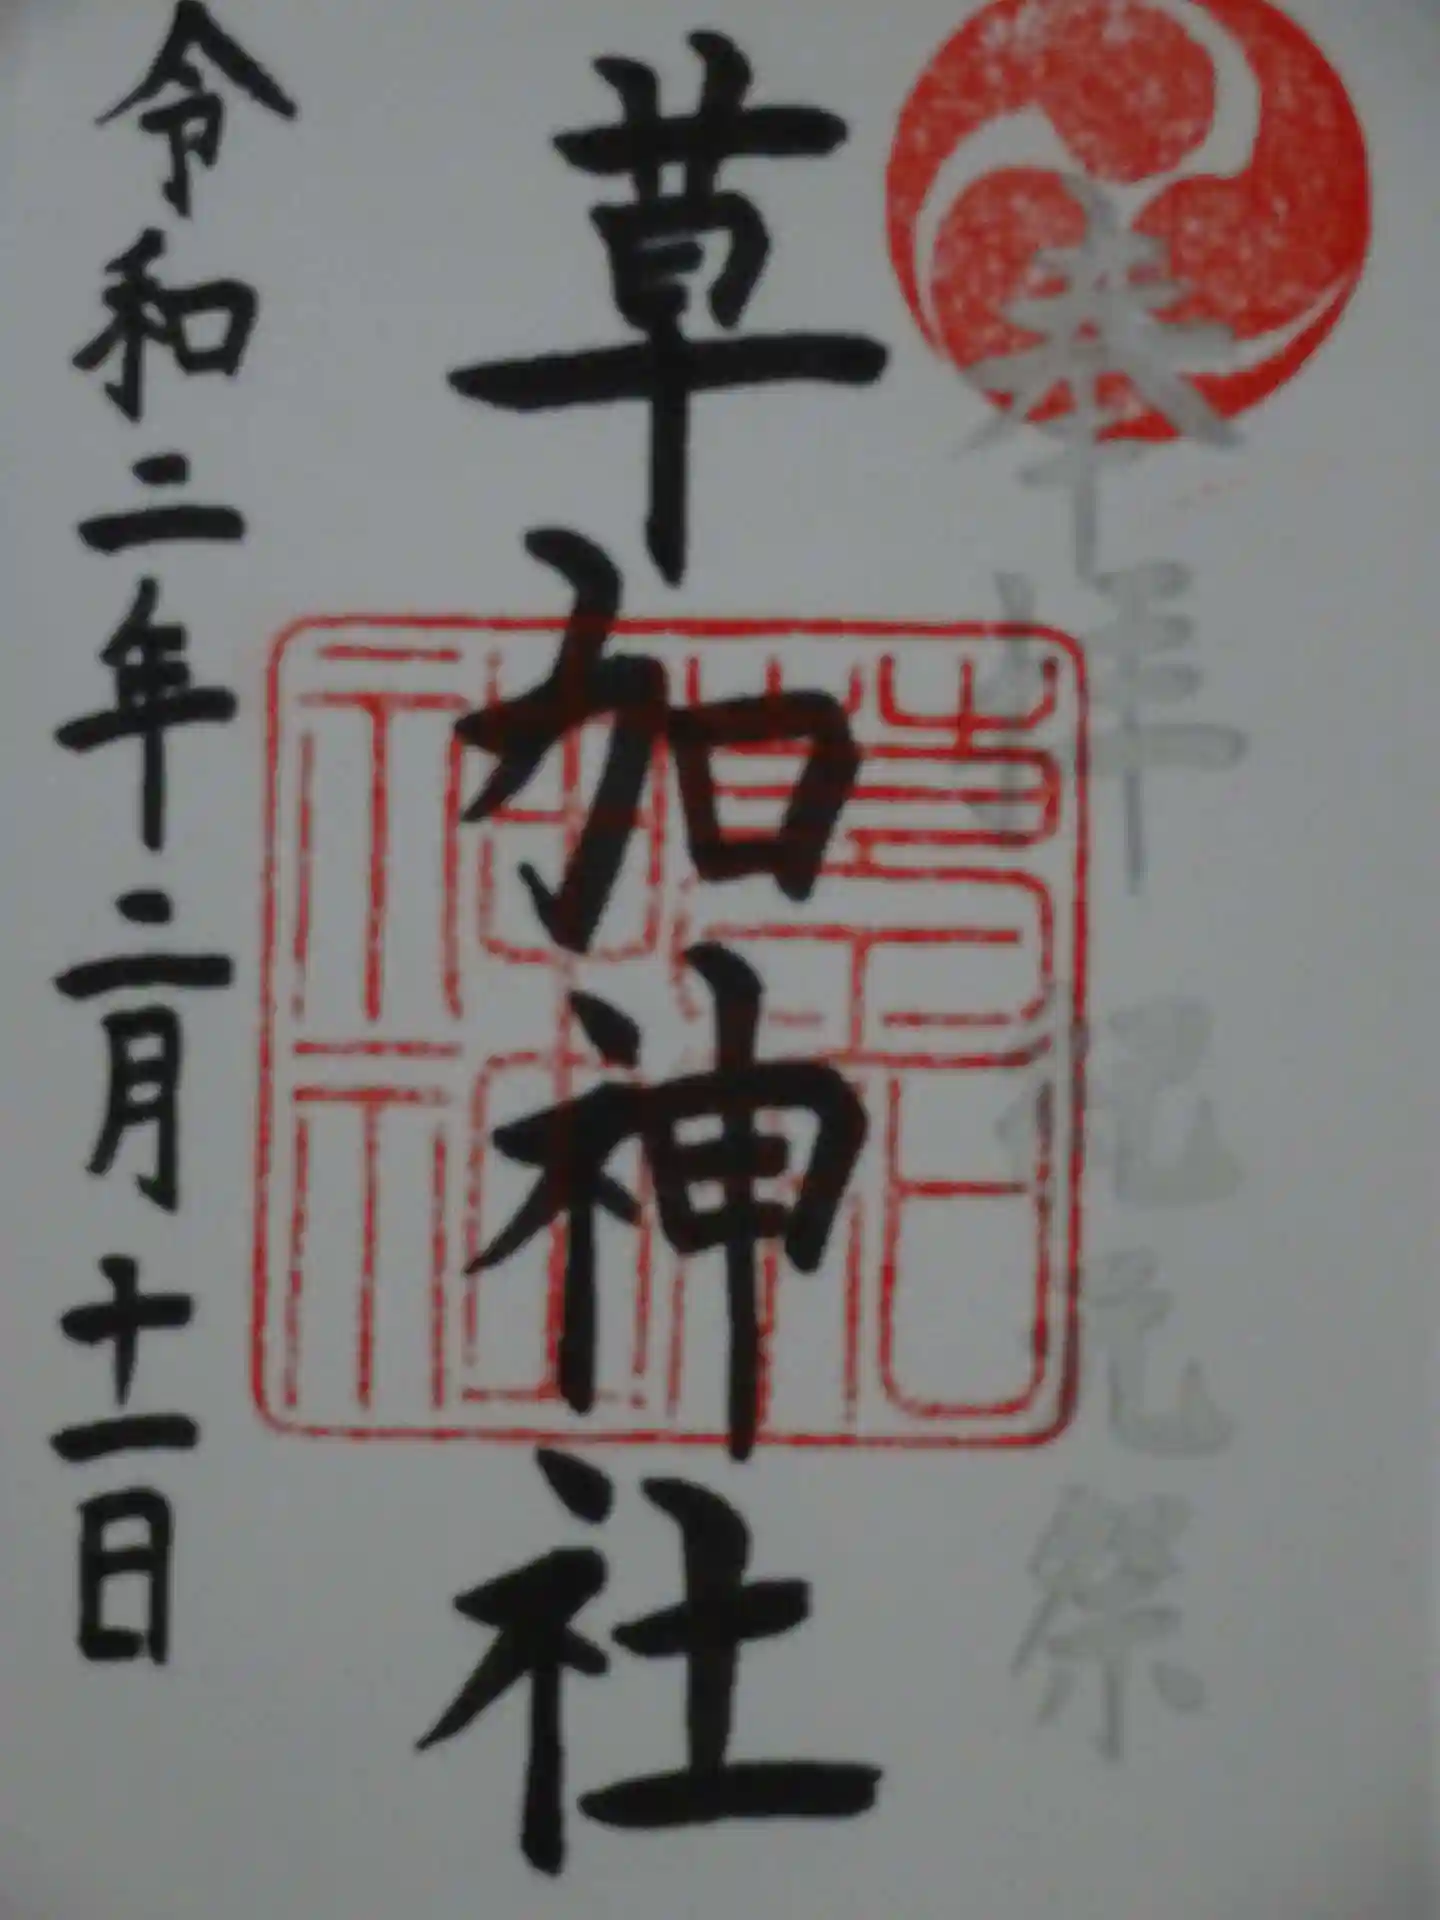 奉拝 紀元祭
草加神社
令和二年二月十一日